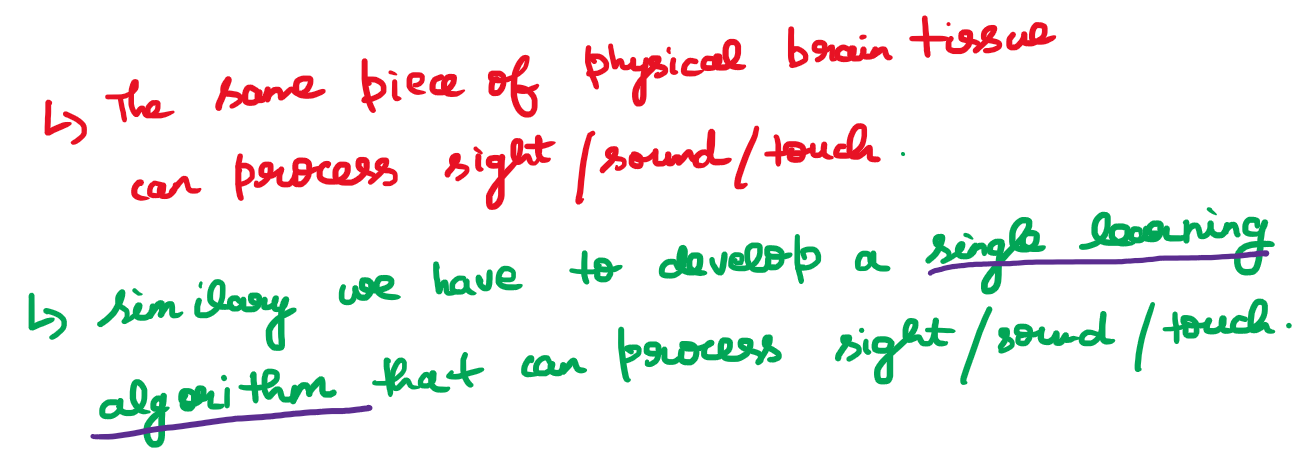 ↳ The same piece of physical brain tissue
can process sight/sound/touch.
↳ similary we have to develop a single learning
algorithm that can process sight/sound/touch.